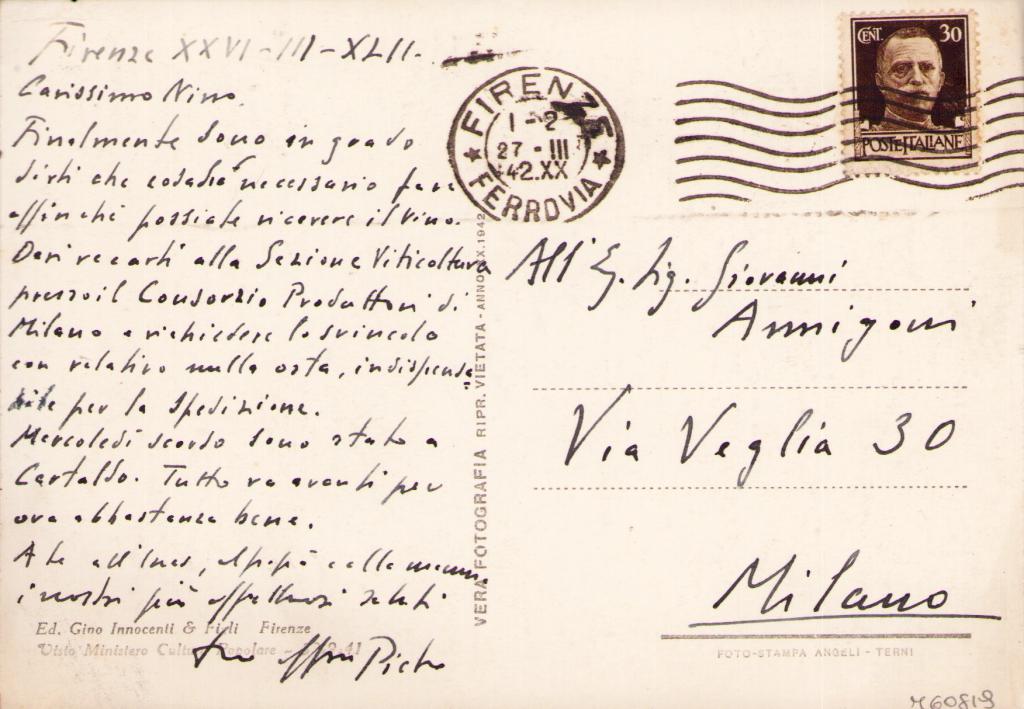 Firenze XXVI-III-XLII.
Carissimo Nino
Finalmente sono in grado
dirti che cosa sia necessario fare
affinchè possiate ricevere il vino.
Devi recarti alla Sezione Viticoltura
presso il Consorzio Produttori di
Milano e richiedere lo svincolo
con relativo nulla osta, indispensa-
bile per la spedizione.
Mercoledì scorso sono stato a
Certaldo. Tutto va avanti per
ora abbastanza bene.
A te all'Ines, al papà e alla mamma
i nostri più affettuosi saluti
tuo Piero
Ed. Gino Innocenti & Figli Firenze
Visto Ministero Cultura Popolare
VERA FOTOGRAFIA RIPR. VIETATA - ANNO XX.1942
FIRENZE
1-2
27-III
42.XX
FERROVIA
CENT. 30
POSTE ITALIANE
All' Eg. Sig. Giovanni
Annigoni
Via Veglia 30
Milano
FOTO-STAMPA ANGELI - TERNI
M60819